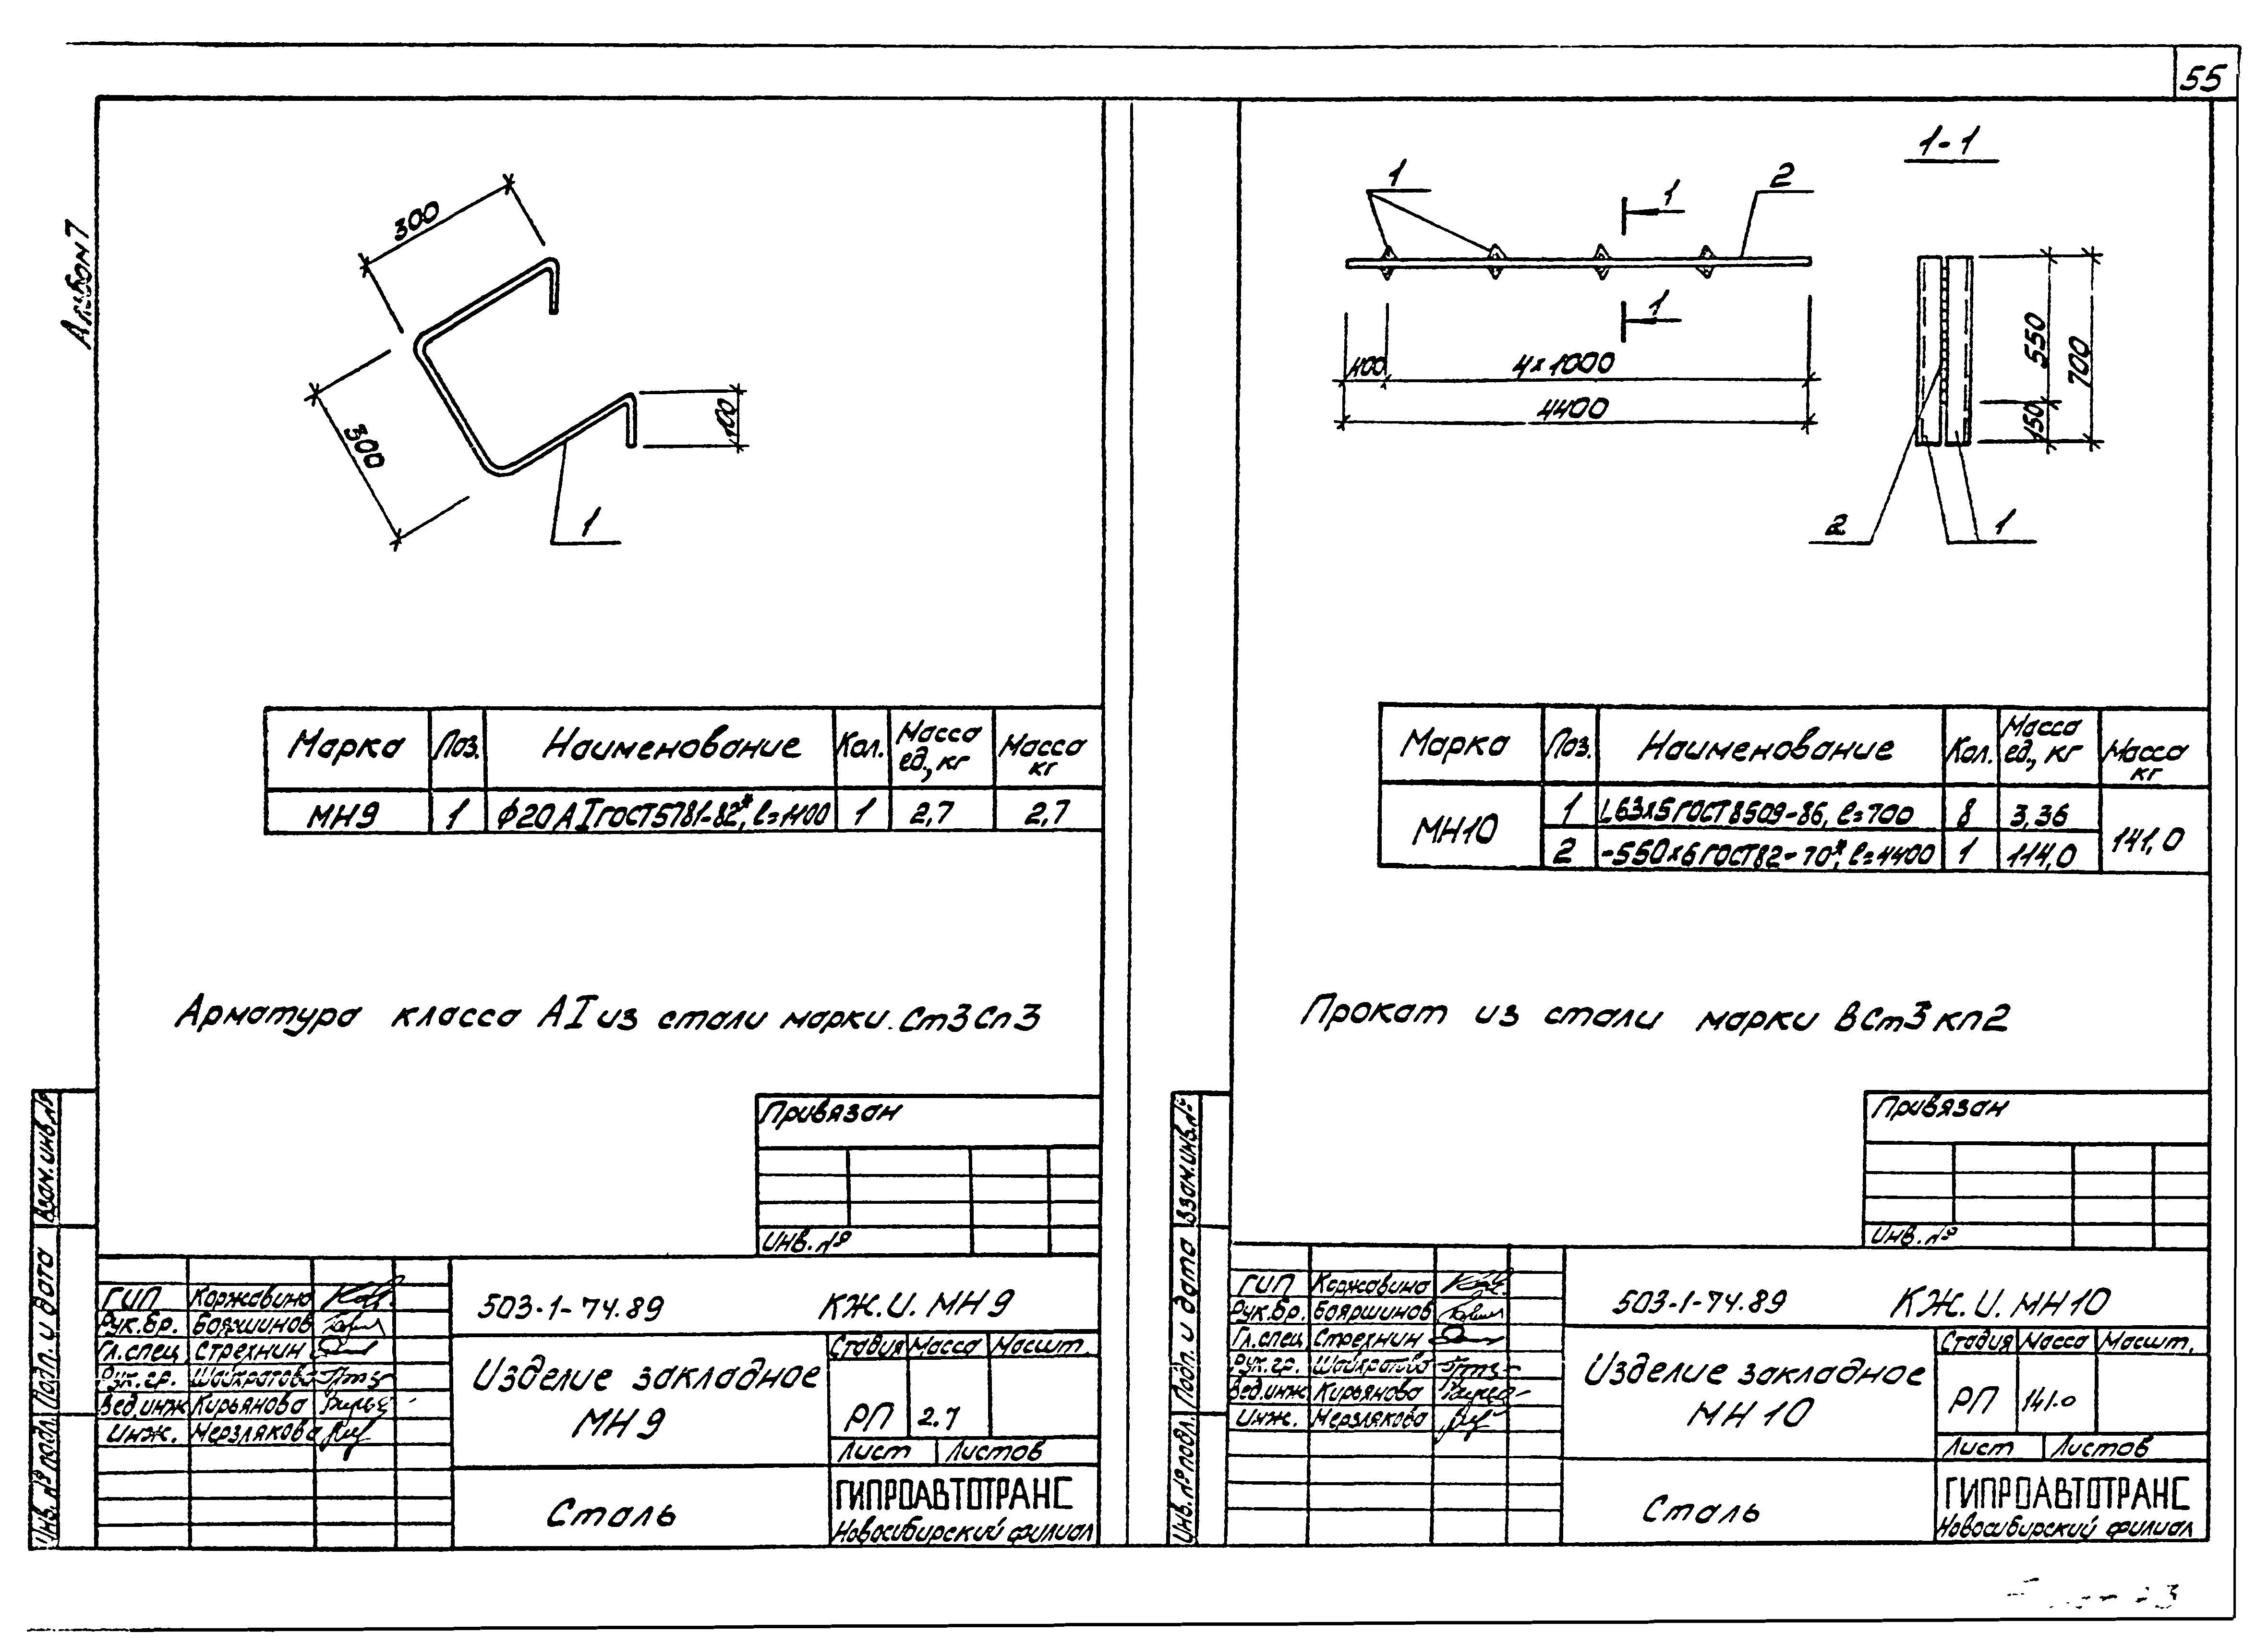 55
Альбом 7
300
300
100
1
Марка Поз. Наименование Кол. Масса ед., кг Масса кг
МН9 1 ϕ20 АI ГОСТ 5781-82*, ℓ=1400 1 2,7 2,7
Арматура класса АI из стали марки Ст3сп3
Привязан
Инв. №
Взам. инв. №
Подп. и дата
Инв. № подл.
ГИП Коржавина
Рук. бр. Бояршинов
Гл. спец. Стрехнин
Рук. гр. Шайхратова
Вед. инж. Кирьянова
Инж. Мерзлякова
503-1-74.89 КЖ.И.МН9
Изделие закладное
МН9
Стадия Масса Масшт.
РП 2.7
Лист Листов
Сталь
ГИПРОАВТОТРАНС
Новосибирский филиал
1-1
1
2
1
1
400
4×1000
4400
550
150
700
2
1
Марка Поз. Наименование Кол. Масса ед., кг Масса кг
МН10 1 L63×5 ГОСТ 8509-86, ℓ=700 8 3,36 141,0
2 -550×6 ГОСТ 82-70*, ℓ=4400 1 114,0
Прокат из стали марки ВСт3кп2
Привязан
Инв. №
Взам. инв. №
Подп. и дата
Инв. № подл.
ГИП Коржавина
Рук. бр. Бояршинов
Гл. спец. Стрехнин
Рук. гр. Шайхратова
Вед. инж. Кирьянова
Инж. Мерзлякова
503-1-74.89 КЖ.И.МН10
Изделие закладное
МН10
Стадия Масса Масшт.
РП 141.0
Лист Листов
Сталь
ГИПРОАВТОТРАНС
Новосибирский филиал